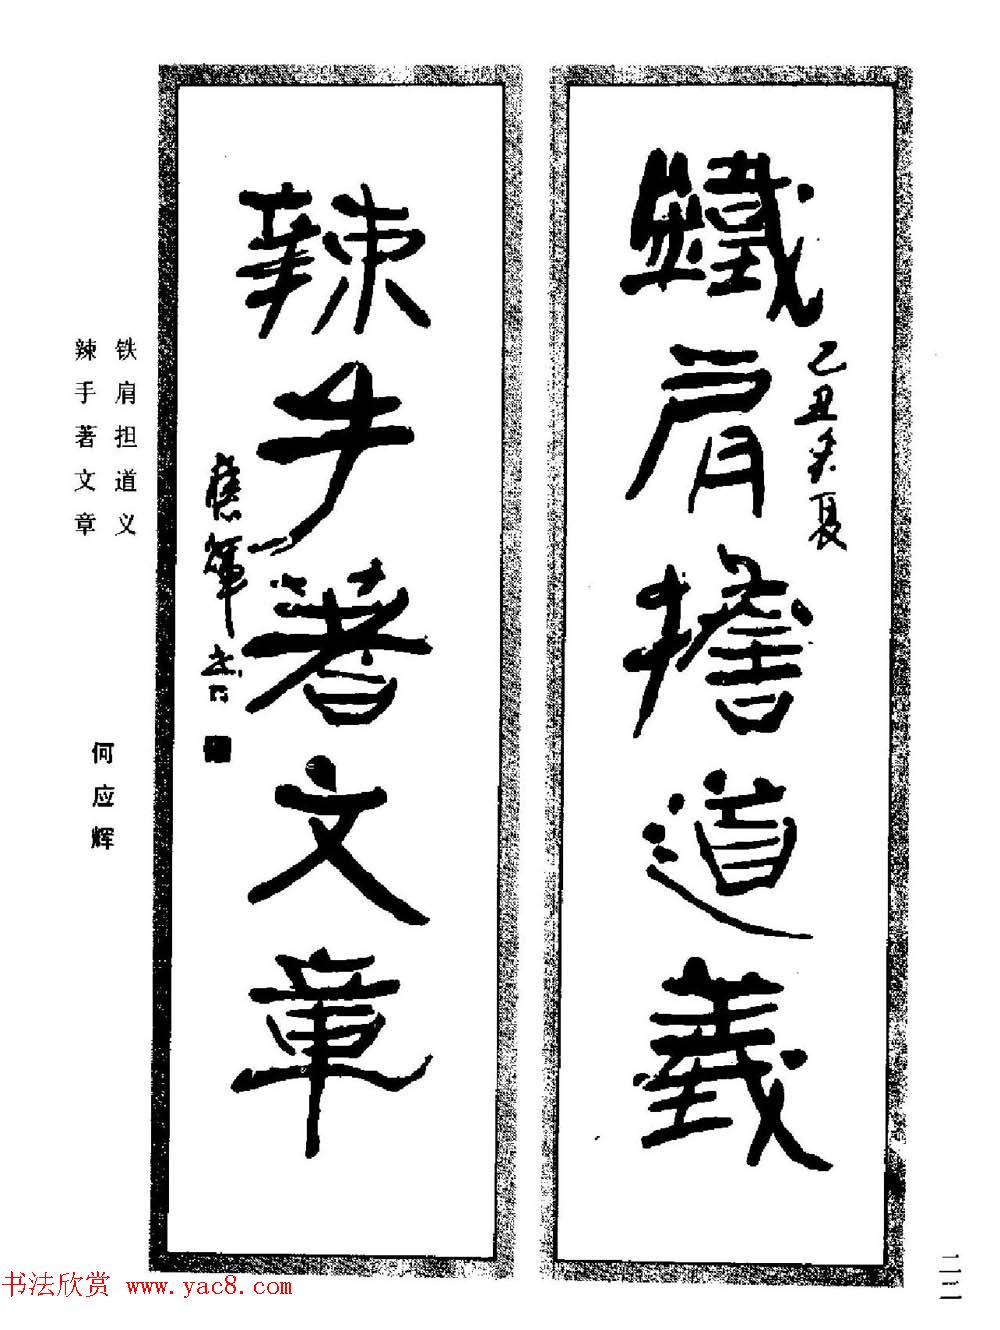 鐵肩擔道義
乙丑炎夏
辣手著文章
應輝書
铁肩担道义
辣手著文章
何应辉
二三
书法欣赏 www.yac8.com